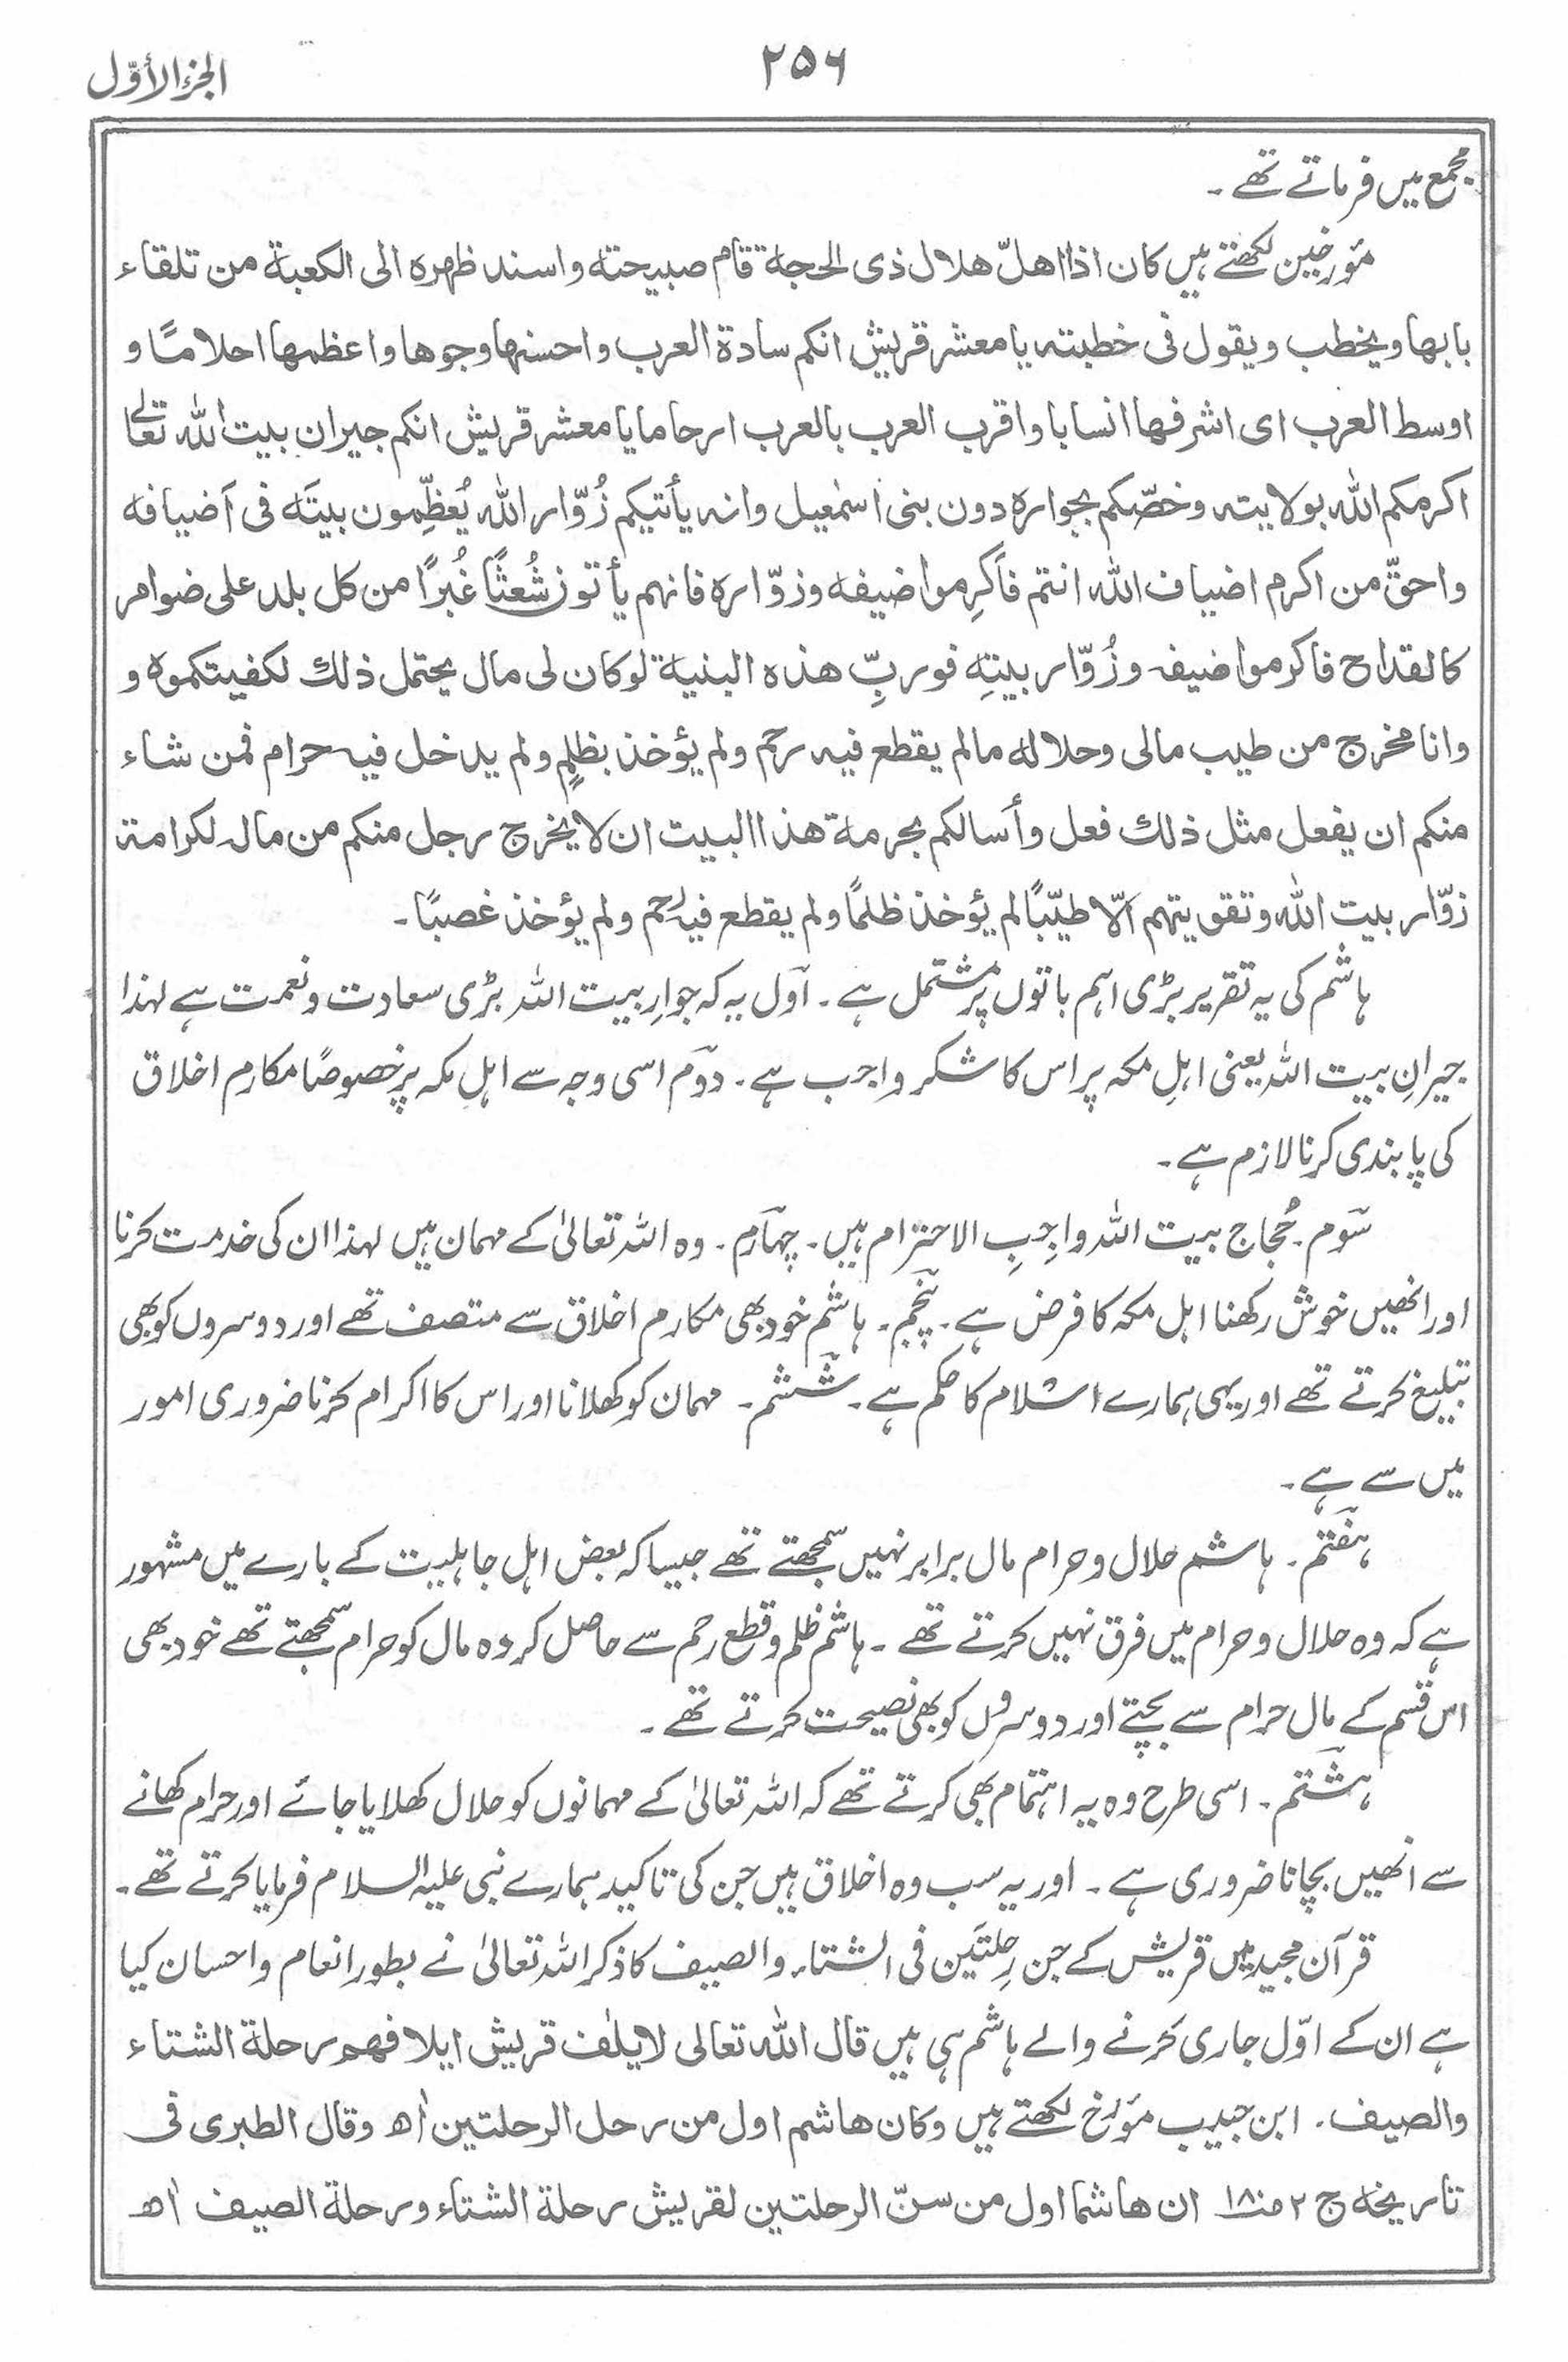 الجزء الأوّل
۲۵۶
مجمع میں فرماتے تھے۔
مؤرخین لکھتے ہیں کان اذا اھلّ ھلال ذی الحجة قام صبیحته واسند ظهره الی الکعبة من تلقاء
بابها ویخطب ویقول فی خطبته یا معشر قریش انکم سادة العرب واحسنها وجوها واعظمها احلامًا و
اوسط العرب ای اشرفها انسابا واقرب العرب بالعرب ارحاما یا معشر قریش انکم جیران بیت الله تعالٰی
اکرمکم الله بولایته وخصّکم بجواره دون بنی اسمٰعیل وانه یأتیکم زُوّار الله یُعظِّمون بیتَه فی اَضیافه
واحقّ من اکرم اضیاف الله انتم فاَکرِموا ضیفه وزوّاره فانهم یأتون شُعثًا غُبرًا من کل بلد علی ضوامر
کالقداح فاکرموا ضیفه وزُوّار بیتِه فوربِّ هذه البنیة لو کان لی مال یحتمل ذلك لکفیتکموه و
وانا مخرج من طیب مالی وحلاله مالم یقطع فیه رحم ولم یؤخذ بظلمٍ ولم یدخل فیه حرام فمن شاء
منکم ان یفعل مثل ذلك فعل وأسالکم بحرمة هذا البیت ان لا یخرج رجل منکم من ماله لکرامة
زوّار بیت الله وتقویتهم الّا طیّبًا لم یؤخذ ظلمًا ولم یقطع فیه رحم ولم یؤخذ غصبًا۔
ہاشم کی یہ تقریر بڑی اہم باتوں پر مشتمل ہے۔ اوّل یہ کہ جوارِ بیت اللہ بڑی سعادت و نعمت ہے لہذا
جیرانِ بیت اللہ یعنی اہلِ مکہ پر اس کا شکر واجب ہے۔ دوّم اسی وجہ سے اہلِ مکہ پر خصوصًا مکارم اخلاق
کی پابندی کرنا لازم ہے۔
سوّم۔ حُجاج بیت اللہ واجِبِ الاحترام ہیں۔ چہارم۔ وہ اللہ تعالیٰ کے مہمان ہیں لہذا ان کی خدمت کرنا
اور انھیں خوش رکھنا اہل مکہ کا فرض ہے۔ پنجم۔ ہاشم خود بھی مکارم اخلاق سے متصف تھے اور دوسروں کو بھی
تبلیغ کرتے تھے اور یہی ہمارے اسلام کا حکم ہے۔ ششم۔ مہمان کو کھلانا اور اس کا اکرام کرنا ضروری امور
میں سے ہے۔
ہفتم۔ ہاشم حلال و حرام مال برابر نہیں سمجھتے تھے جیسا کہ بعض اہل جاہلیت کے بارے میں مشہور
ہے کہ وہ حلال و حرام میں فرق نہیں کرتے تھے۔ ہاشم ظلم و قطع رحم سے حاصل کردہ مال کو حرام سمجھتے تھے خود بھی
اس قسم کے مال حرام سے بچتے اور دوسروں کو بھی نصیحت کرتے تھے۔
ہشتم۔ اسی طرح وہ یہ اہتمام بھی کرتے تھے کہ اللہ تعالیٰ کے مہمانوں کو حلال کھلایا جائے اور حرام کھانے
سے انھیں بچانا ضروری ہے۔ اور یہ سب وہ اخلاق ہیں جن کی تاکید ہمارے نبی علیہ السلام فرمایا کرتے تھے۔
قرآن مجید میں قریش کے جن رِحلتَین فی الشتاء والصیف کا ذکر اللہ تعالیٰ نے بطور انعام و احسان کیا
ہے ان کے اوّل جاری کرنے والے ہاشم ہی ہیں قال الله تعالی لایلٰف قریش ایلافهم رحلة الشتاء
والصیف۔ ابن حبیب مؤرخ لکھتے ہیں وکان هاشم اول من رحل الرحلتین اھ وقال الطبری فی
تاریخه ج ۲ ص۱۸۰ ان هاشما اول من سنّ الرحلتین لقریش رحلة الشتاء ورحلة الصیف اھ